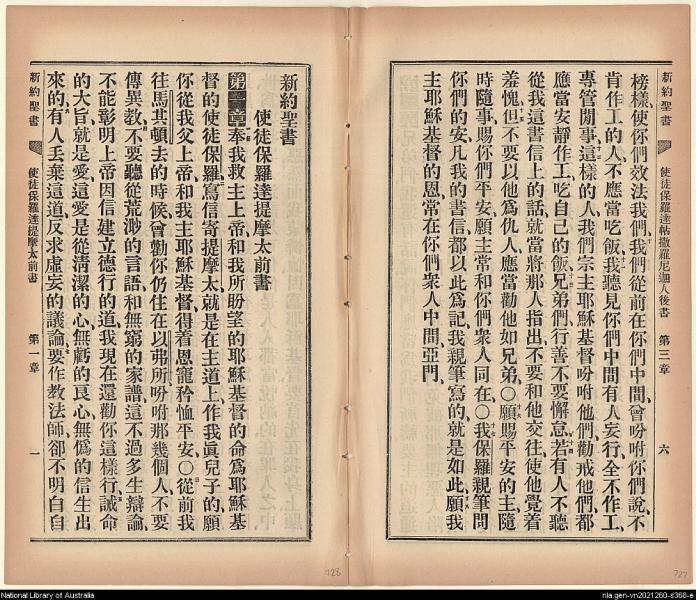 新約聖書 使徒保羅達帖撒羅尼迦人後書 第三章 六
榜樣使你們效法我們我們從前在你們中間曾吩咐你們說不
肯作工的人不應當吃飯我聽見你們中間有人妄行全不作工
專管閒事這樣的人我們宗主耶穌基督吩咐他們勸戒他們都
應當安靜作工吃自己的飯兄弟們行善不要懈怠若有人不聽
從我這書信上的話就當將那人指出不要和他交往使他覺着
羞愧但不要以他為仇人應當勸他如兄弟○願賜平安的主隨
時隨事賜你們平安願主常和你們衆人同在○我保羅親筆問
你們的安凡我的書信都以此爲記我親筆寫的就是如此願我
主耶穌基督的恩常在你們衆人中間亞門
新約聖書
使徒保羅達提摩太前書
第一章 奉我救主上帝和我所盼望的耶穌基督的命爲耶穌基
督的使徒保羅寫信寄提摩太就是在主道上作我眞兒子的願
你從我父上帝和我主耶穌基督得着恩寵矜恤平安○從前我
往馬其頓去的時候曾勸你仍住在以弗所吩咐那幾個人不要
傳異教不要聽從荒渺的言語和無窮的家譜這不過多生辯論
不能彰明上帝因信建立德行的道我現在還勸你這樣行誡命
的大旨就是愛這愛是從淸潔的心無虧的良心無僞的信生出
來的有人丢棄這道反求虛妄的議論要作教法師卻不明白自
新約聖書 使徒保羅達提摩太前書 第一章 一
728
727
National Library of Australia
nla.gen-vn2021260-s368-e